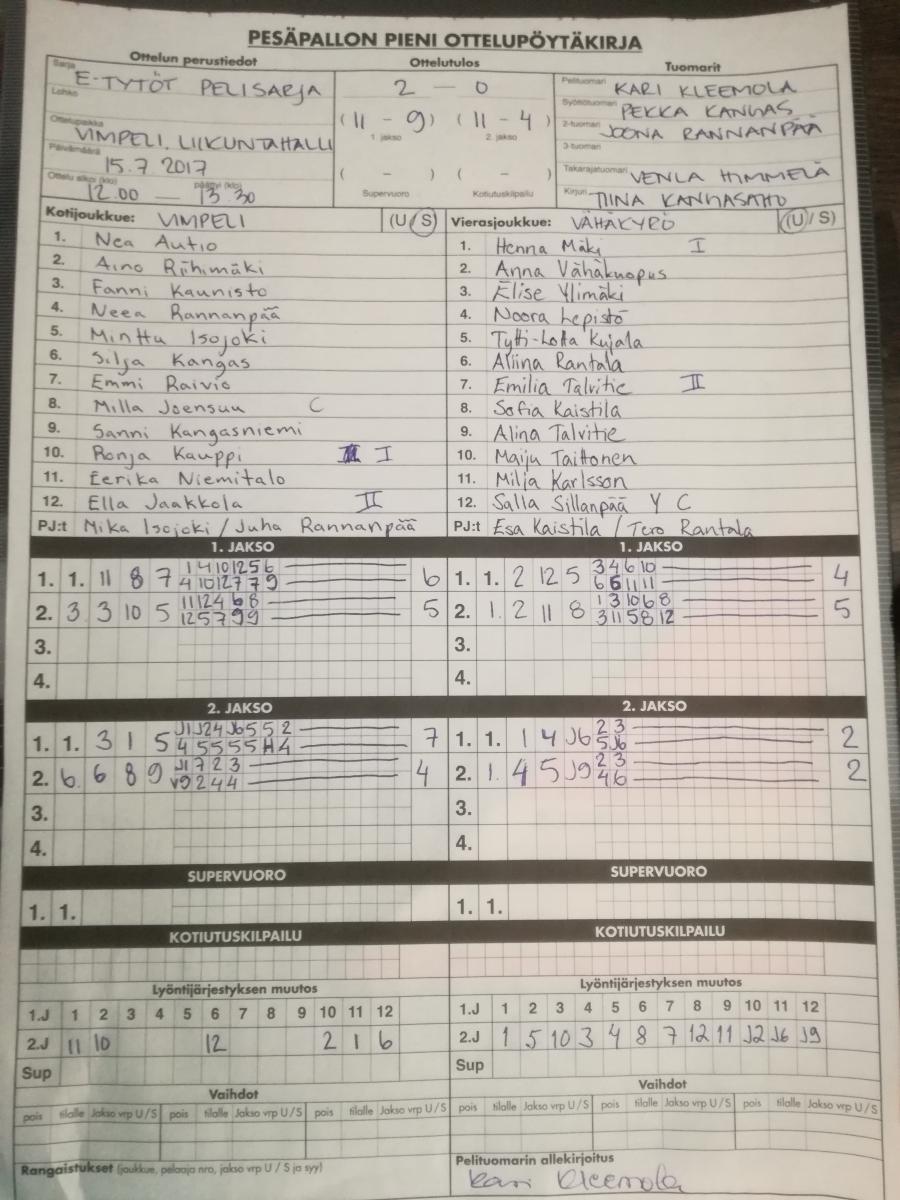 PESÄPALLON PIENI OTTELUPÖYTÄKIRJA
Ottelun perustiedot
Ottelutulos
Tuomarit
Sarja E-TYTÖT PELISARJA
Lohko
Ottelupaikka VIMPELI, LIIKUNTAHALLI
Päivämäärä 15.7.2017
Ottelu alkoi (klo) 12.00 — päättyi (klo) 13.30
2 — 0
(11 - 9) (11 - 4)
1. jakso 2. jakso
( - ) ( - )
Supervuoro Kotiutuskilpailu
Pelituomari KARI KLEEMOLA
Syöttötuomari PEKKA KANGAS
2-tuomari JOONA RANNANPÄÄ
3-tuomari
Takarajatuomari VENLA HIMMELÄ
Kirjuri TIINA KANGASAHO
Kotijoukkue: VIMPELI (U/S)
1. Nea Autio
2. Aino Riihimäki
3. Fanni Kaunisto
4. Neea Rannanpää
5. Minttu Isojoki
6. Silja Kangas
7. Emmi Raivio
8. Milla Joensuu C
9. Sanni Kangasniemi
10. Ronja Kauppi I
11. Eerika Niemitalo
12. Ella Jaakkola II
PJ:t Mika Isojoki / Juha Rannanpää
Vierasjoukkue: VÄHÄKYRÖ (U/S)
1. Henna Mäki I
2. Anna Vähäkuopus
3. Elise Ylimäki
4. Noora Lepistö
5. Tytti-Lotta Kujala
6. Aliina Rantala
7. Emilia Talvitie II
8. Sofia Kaistila
9. Alina Talvitie
10. Maiju Taittonen
11. Milja Karlsson
12. Salla Sillanpää Y C
PJ:t Esa Kaistila / Tero Rantala
1. JAKSO
1. 1. 11 8 7 1 4 10 12 5 6 6
4 10 12 7 7 9
2. 3 3 10 5 11 12 4 6 8 5
12 5 7 9 9
3.
4.
1. JAKSO
1. 1. 2 12 5 3 4 6 10 4
6 6 11 11
2. 1. 2 11 8 1 3 10 6 8 5
3 11 5 8 12
3.
4.
2. JAKSO
1. 1. 3 1 5 J1 J2 4 J6 5 5 2 7
4 5 5 5 5 4
2. 6. 6 8 9 J1 7 2 3 4
9 2 4 4
3.
4.
2. JAKSO
1. 1. 1 4 J6 2 3 2
5 J6
2. 1. 4 5 J9 2 3 2
4 6
3.
4.
SUPERVUORO
1. 1.
SUPERVUORO
1. 1.
KOTIUTUSKILPAILU
KOTIUTUSKILPAILU
Lyöntijärjestyksen muutos
1.J 1 2 3 4 5 6 7 8 9 10 11 12
2.J 11 10 12 2 1 6
Sup
Lyöntijärjestyksen muutos
1.J 1 2 3 4 5 6 7 8 9 10 11 12
2.J 1 5 10 3 4 8 7 12 11 J2 J6 J9
Sup
Vaihdot
pois tilalle Jakso vrp U/S pois tilalle Jakso vrp U/S pois tilalle Jakso vrp U/S
Vaihdot
pois tilalle Jakso vrp U/S pois tilalle Jakso vrp U/S pois tilalle Jakso vrp U/S
Rangaistukset (joukkue, pelaaja nro, jakso vrp U / S ja syy)
Pelituomarin allekirjoitus
Kari Kleemola